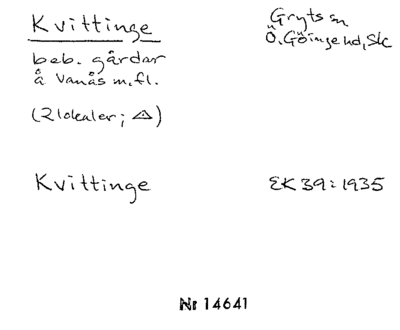 Kvittinge
Gryts sn
Ö. Göinge hd, Sk
beb. gårdar
å Vanås m.fl.
(2 lokaler; ⚠)
Kvittinge
EK 39:1935
Nr 14641